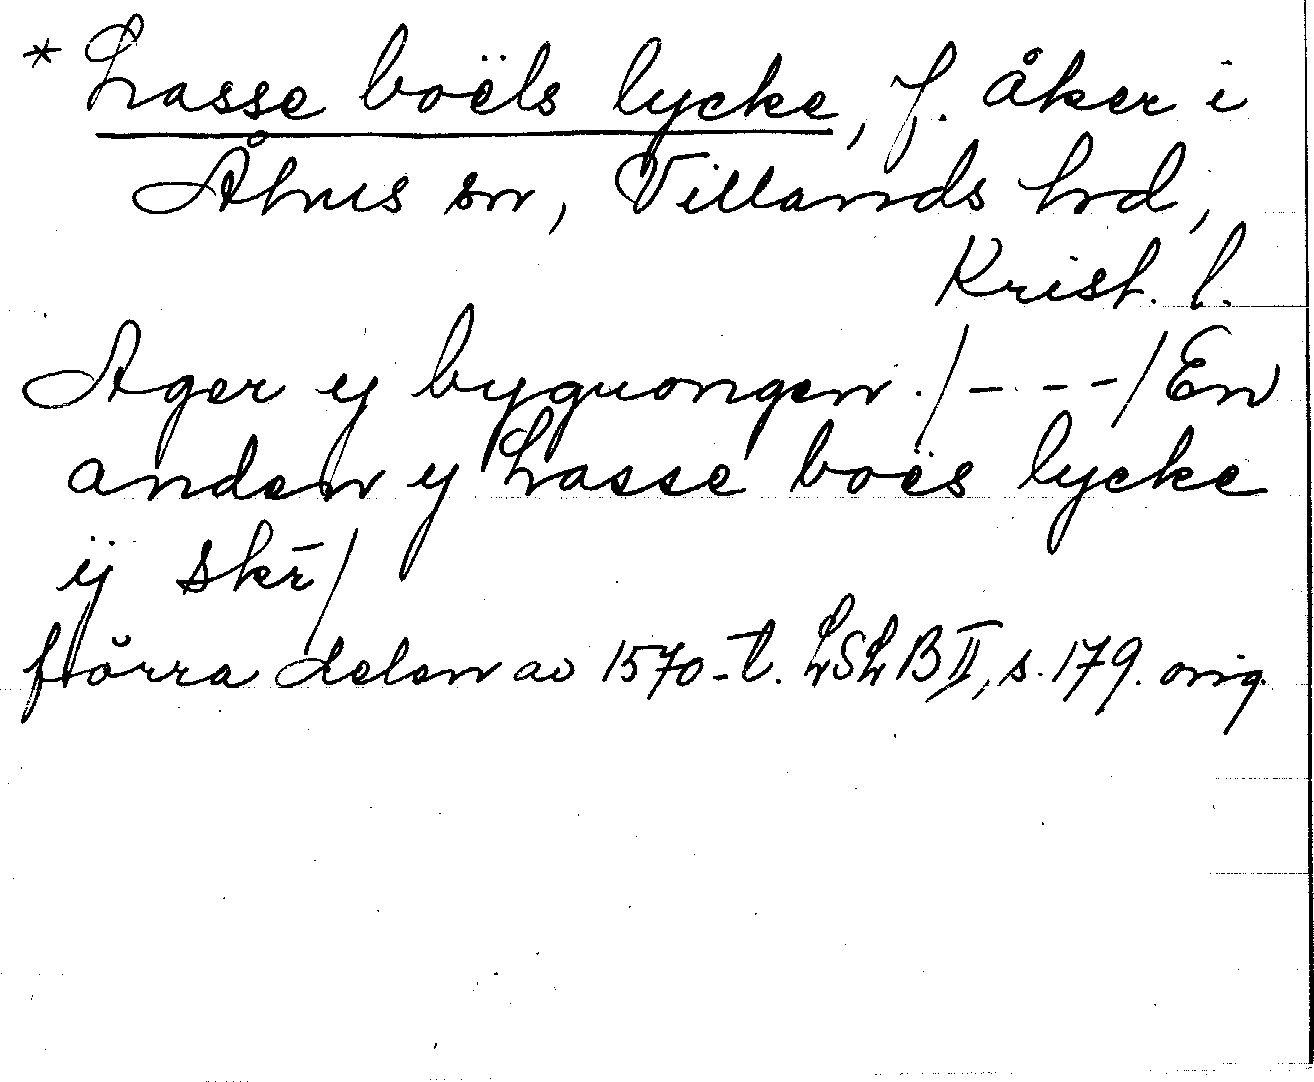 * Lasse boëls lycke, f. åker i
Åhus sn, Villands hd,
Krist. l.
Ager y byguongen ./- - - -/ En
anden y Lasse boës lycke
ÿ skr̄/
förra delen av 1570-t. LSLB II, s. 179. orig.